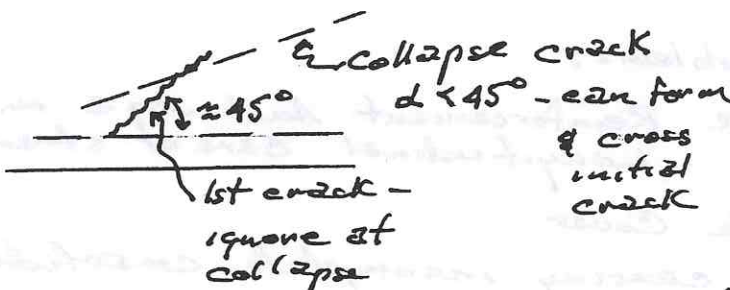 collapse crack
α < 45° - can form
& cross
initial
crack
≈ 45°
1st crack -
ignore at
collapse